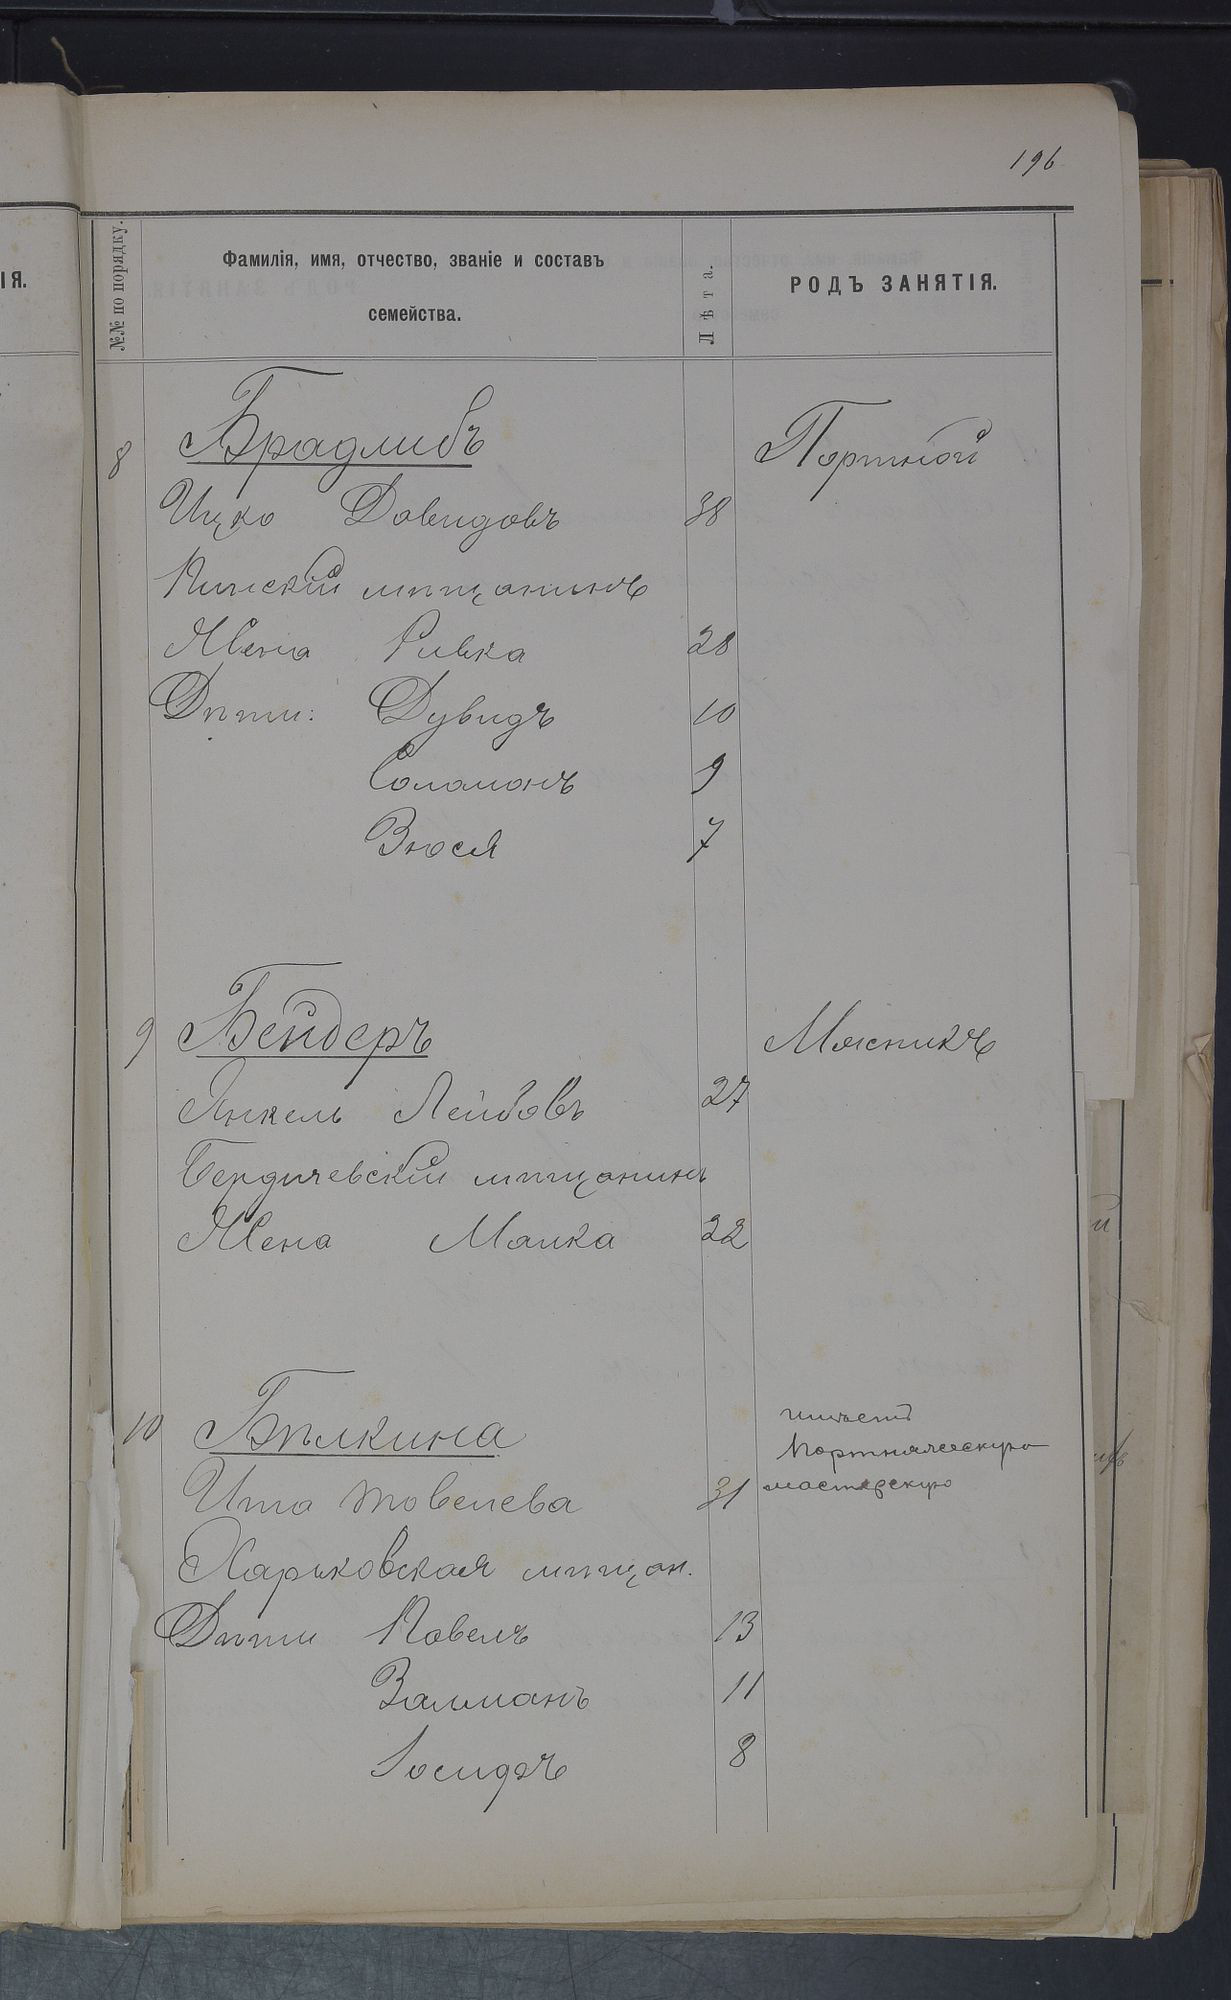 196
№№ по порядку.
Фамилія, имя, отчество, званіе и составъ
семейства.
Лѣта.
РОДЪ ЗАНЯТІЯ.
ІЯ.
8 Брадлибъ Портной
Ицко Довидовъ 38
Пинскій мѣщанинъ
Жена Ривка 28
Дѣти: Дувидъ 10
Соломонъ 9
Зюся 7
9 Бендеръ Мясникъ
Янкель Лейбовъ 27
Бердичевскій мѣщанинъ
Жена Малка 22
10 Бѣлкина имѣетъ
портняжескую
Ита Товелева 31 мастерскую
Харьковская мѣщан.
Дѣти Павелъ 13
Залманъ 11
Іосифъ 8